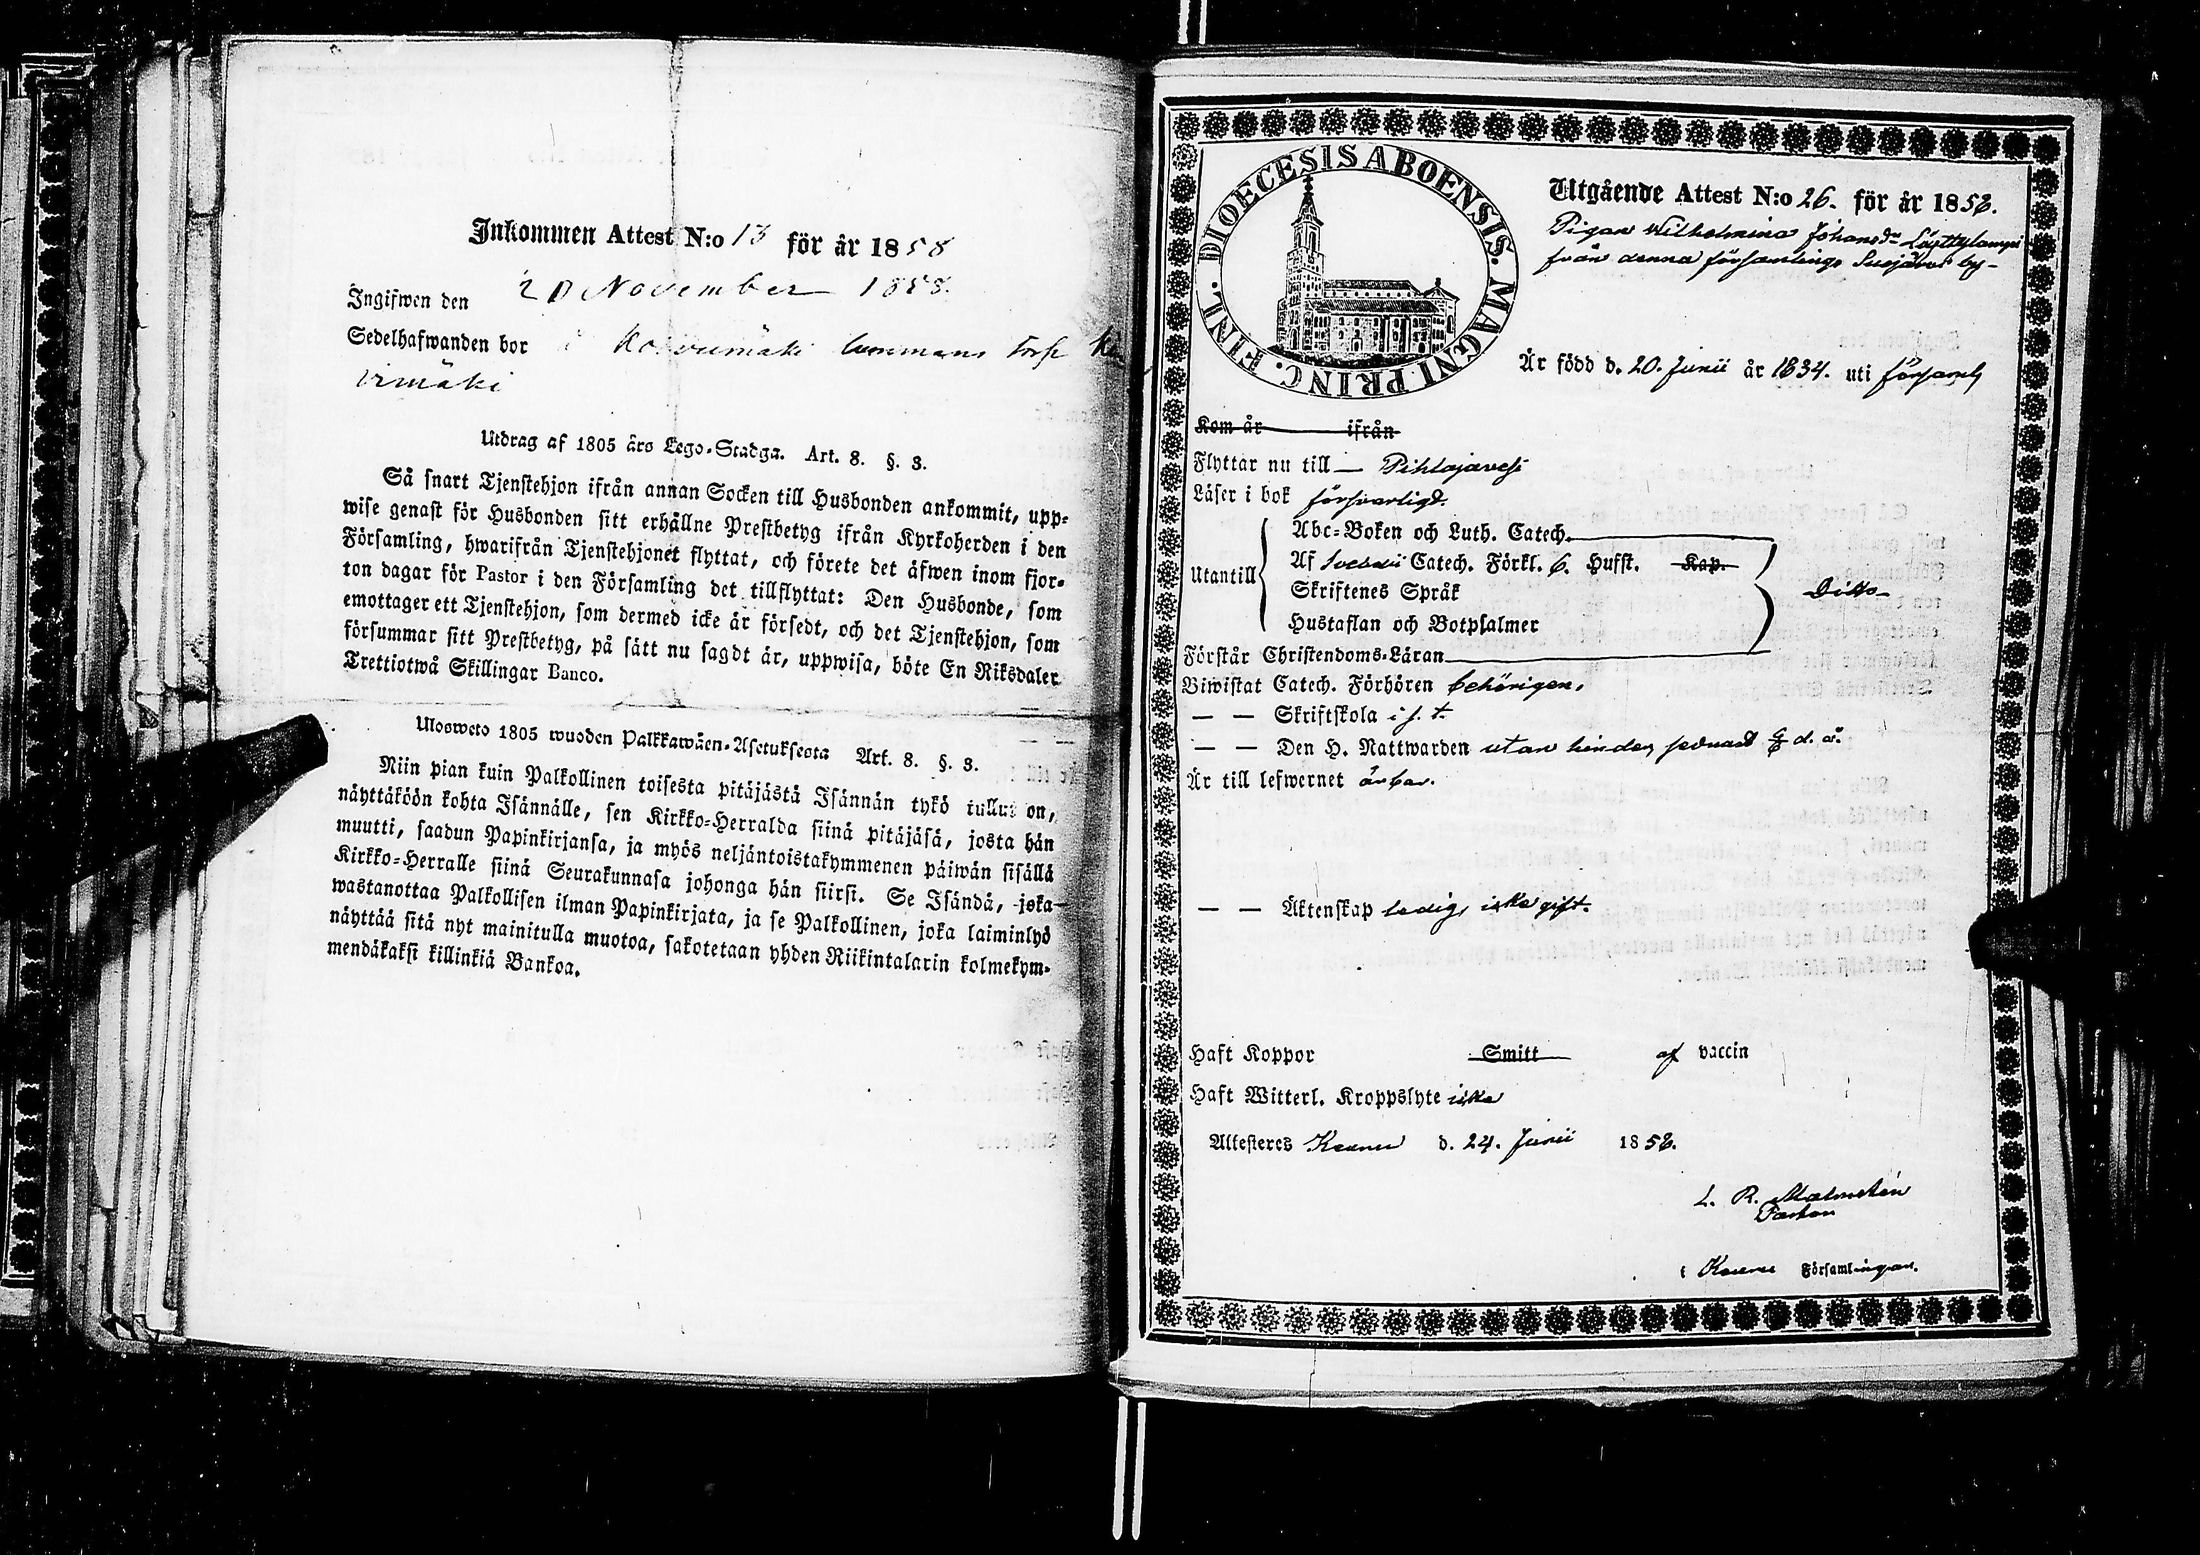 Inkommen Attest N:o 13 för år 1858
Ingifwen den 20 November 1858.
Sedelhafwanden bor i
Utdrag af 1805 års Lego-Stadga. Art. 8. §. 3.
Så snart Tjenstehjon ifrån annan Socken till Husbonden ankommit, upp-
wise genast för Husbonden sitt erhållne Prestbetyg ifrån Kyrkoherden i den
Församling, hwarifrån Tjenstehjonet flyttat, och förete det äfwen inom fjor-
ton dagar för Pastor i den Församling det tillflyttat: Den Husbonde, som
emottager ett Tjenstehjon, som dermed icke är försedt, och det Tjenstehjon, som
försummar sitt Prestbetyg, på sätt nu sagdt är, uppwisa, böte En Riksdaler
Trettiotwå Skillingar Banco.
Ulosweto 1805 wuoden Palkkawäen-Asetuksesta Art. 8. §. 3.
Niin pian kuin Palkollinen toisesta pitäjästä Isännän tykö tullut on,
näyttäköön kohta Isännälle, sen Kirkko-Herralda siinä pitäjäsä, josta hän
muutti, saadun Papinkirjansa, ja myös neljäntoistakymmenen päiwän sisällä
Kirkko-Herralle siinä Seurakunnasa johonga hän siirsi. Se Isändä, joka
wastanottaa Palkollisen ilman Papinkirjata, ja se Palkollinen, joka laiminlyö
näyttää sitä nyt mainitulla muotoa, sakotetaan yhden Riikintalarin kolmekym-
mendäkaksi killinkiä Bankoa.
DIOECESIS ABOENSIS. MAGNI PRINC. FINL.
Utgående Attest N:o 26. för år 1858.
Pigan Wilhelmina Johansdr
från denna församlings by-
Är född d. 20. Junii år 1834. uti förs
Kom år ifrån
Flyttar nu till — Pihlajavesi
Läser i bok försvarligt.
Abc-Boken och Luth. Catech.
Utantill Af Svebelii Catech. Förkl. 6. Hufst. Kap. Ditto
Skriftenes Språk
Hustaflan och Botpsalmer
Förstår Christendoms-Läran
Biwistat Catech. Förhören behörigen.
— — Skriftskola i s. t.
— — Den H. Nattwarden utan hinder, senast d. å.
Är till lefwernet ärbar.
— — Äktenskap ledig, icke gift.
Haft Koppor Smitt af vaccin
Haft Witterl. Kroppslyte icke
Attesteres Keuru d. 24. Junii 1858.
L. R. Malmstén
Pastor
i Keuru Församlingar.